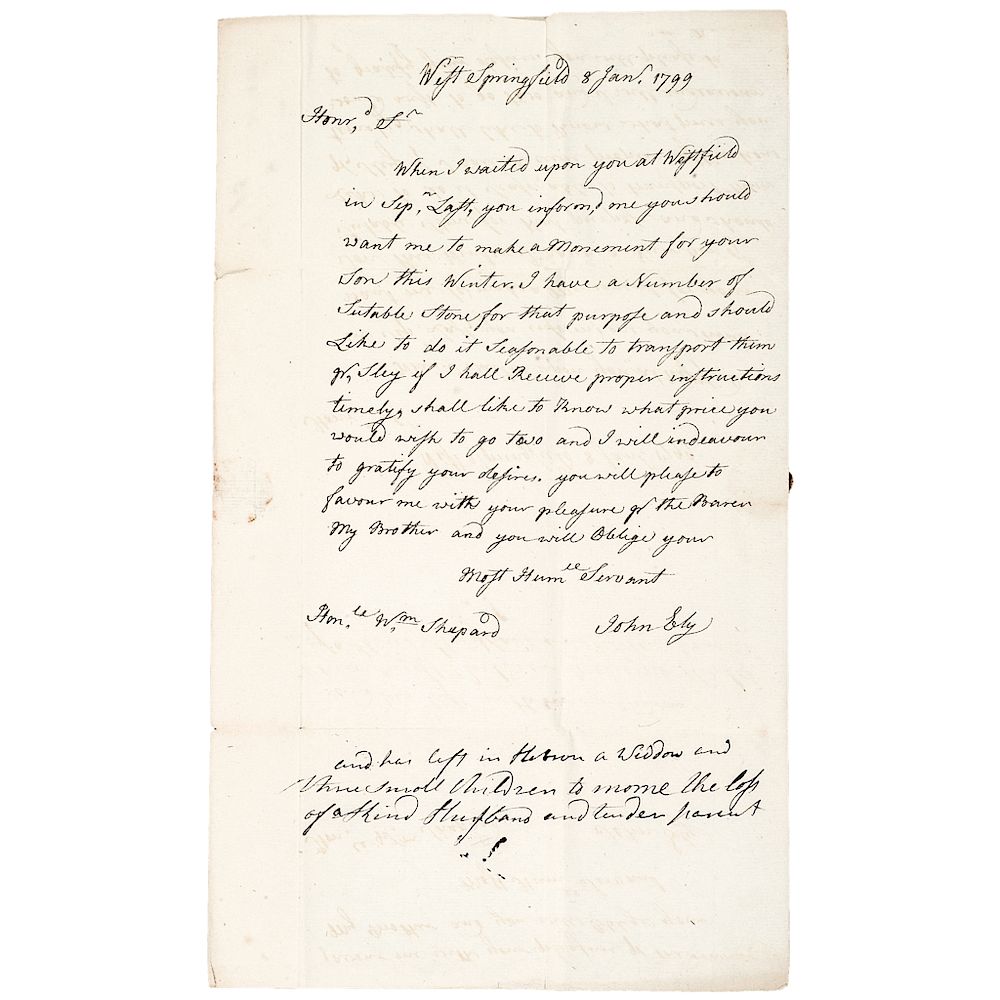 West Springfield 8 Jan. 1799
Honr,d Sr
When I waited upon you at Westfield
in Sep,r Last, you inform,d me you should
want me to make a Monement for your
Son this Winter. I have a Number of
Sutable Stone for that purpose and should
Like to do it Seasonable to transport them
pr, Sley if I hall Receive proper instructions
timely, shall like to Know what price you
would wish to go two and I will indeavour
to gratify your desires. you will please to
favour me with your pleasure pr the Barer
My Brother and you will Oblige your
Most Humle Servant
Hon,le Wm Shepard John Ely
and has left in Hebron a Widdow and
three small Children to morne the loss
of a Kind Husband and tender parent